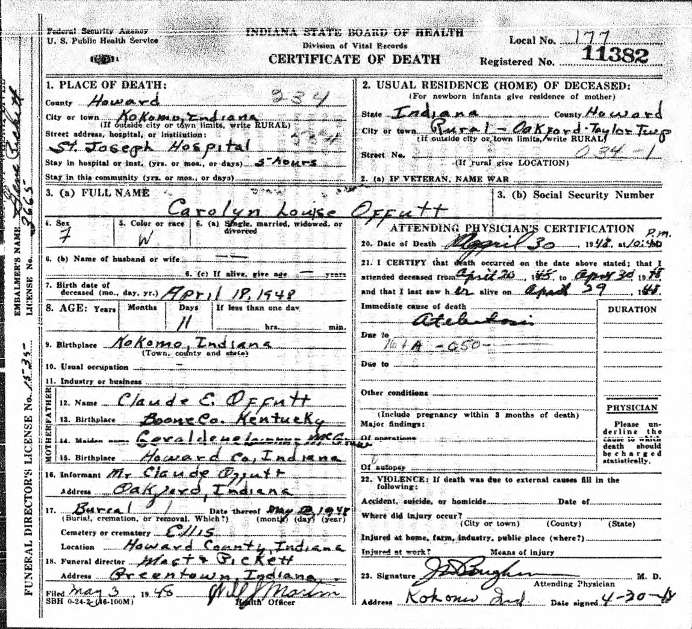 Federal Security Agency
U. S. Public Health Service
INDIANA STATE BOARD OF HEALTH
Division of Vital Records
CERTIFICATE OF DEATH
Local No. 177
Registered No. 11382
1. PLACE OF DEATH:
County Howard 234
City or town Kokomo, Indiana
(If outside city or town limits, write RURAL)
Street address, hospital, or institution:
St. Joseph Hospital
Stay in hospital or inst. (yrs. or mos., or days) 5-hours
Stay in this community (yrs. or mos., or days)
2. USUAL RESIDENCE (HOME) OF DECEASED:
(For newborn infants give residence of mother)
State Indiana County Howard
City or town Rural - Oakford - Taylor Twp
(If outside city or town limits, write RURAL)
Street No. 034-1
(If rural give LOCATION)
2. (a) IF VETERAN, NAME WAR
3. (a) FULL NAME
Carolyn Louise Offutt
3. (b) Social Security Number
4. Sex
F
5. Color or race
W
6. (a) Single, married, widowed, or divorced
6. (b) Name of husband or wife
6. (c) If alive, give age years
7. Birth date of
deceased (mo., day, yr.) April 18, 1948
8. AGE: Years Months Days If less than one day
11 hrs. min.
9. Birthplace Kokomo, Indiana
(Town, county and state)
10. Usual occupation
11. Industry or business
FATHER
12. Name Claude E. Offutt
13. Birthplace Boone Co. Kentucky
MOTHER
14. Maiden name Geraldene
15. Birthplace Howard Co, Indiana
16. Informant Mr Claude Offutt
Address Oakford, Indiana
17. Burial Date thereof May 1948
(Burial, cremation, or removal. Which?) (month) (day) (year)
Cemetery or crematory Ellis
Location Howard County, Indiana
18. Funeral director Mast & Pickett
Address Greentown, Indiana
Filed May 3, 1948
Health Officer
SBH 0-24-2 (46-100M)
ATTENDING PHYSICIAN'S CERTIFICATION
20. Date of Death April 30 1948, at P.M.
21. I CERTIFY that death occurred on the date above stated; that I
attended deceased from April 20 to April 30
and that I last saw h alive on April 29 1948.
Immediate cause of death
DURATION
Due to
Due to
Other conditions
(Include pregnancy within 3 months of death)
Major findings:
Of operations
Of autopsy
PHYSICIAN
Please underline the cause to which death should be charged statistically.
22. VIOLENCE: If death was due to external causes fill in the
following:
Accident, suicide, or homicide Date of
Where did injury occur?
(City or town) (County) (State)
Injured at home, farm, industry, public place (where?)
Injured at work? Means of injury
23. Signature M. D.
Attending Physician
Address Kokomo Ind. Date signed 4-30-48
EMBALMER'S NAME Pickett
LICENSE No. 3665
FUNERAL DIRECTOR'S LICENSE No. 1535